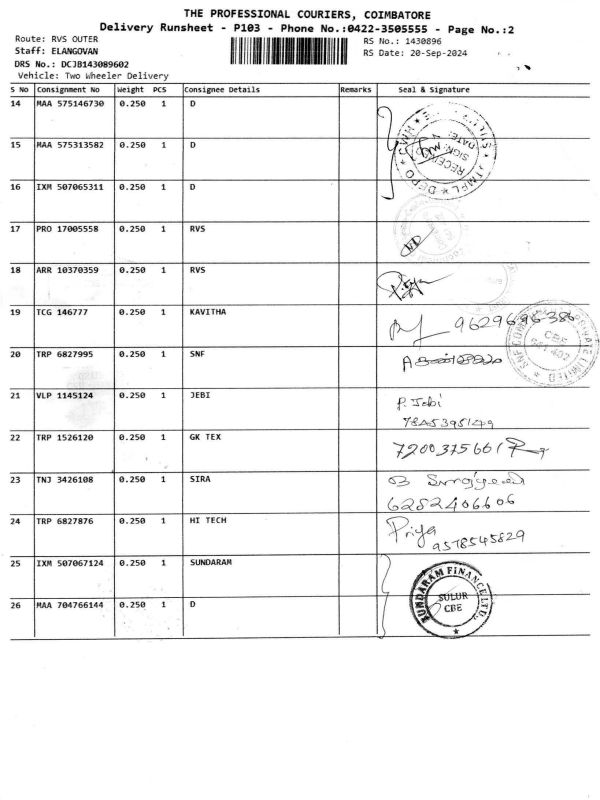 THE PROFESSIONAL COURIERS, COIMBATORE
Delivery Runsheet - P103 - Phone No.:0422-3505555 - Page No.:2
Route: RVS OUTER
RS No.: 1430896
Staff: ELANGOVAN
RS Date: 20-Sep-2024
DRS No.: DCJB143089602
Vehicle: Two Wheeler Delivery
S No Consignment No Weight PCS Consignee Details Remarks Seal & Signature
14 MAA 575146730 0.250 1 D
15 MAA 575313582 0.250 1 D
16 IXM 507065311 0.250 1 D
17 PRO 17005558 0.250 1 RVS
18 ARR 10370359 0.250 1 RVS
19 TCG 146777 0.250 1 KAVITHA 9629696386
20 TRP 6827995 0.250 1 SNF
21 VLP 1145124 0.250 1 JEBI P. Jebi
7845395149
22 TRP 1526120 0.250 1 GK TEX 7200375661
23 TNJ 3426108 0.250 1 SIRA
6282406606
24 TRP 6827876 0.250 1 HI TECH Priya
9578545829
25 IXM 507067124 0.250 1 SUNDARAM
26 MAA 704766144 0.250 1 D
SUNDARAM FINANCE LTD.,
SULUR
CBE